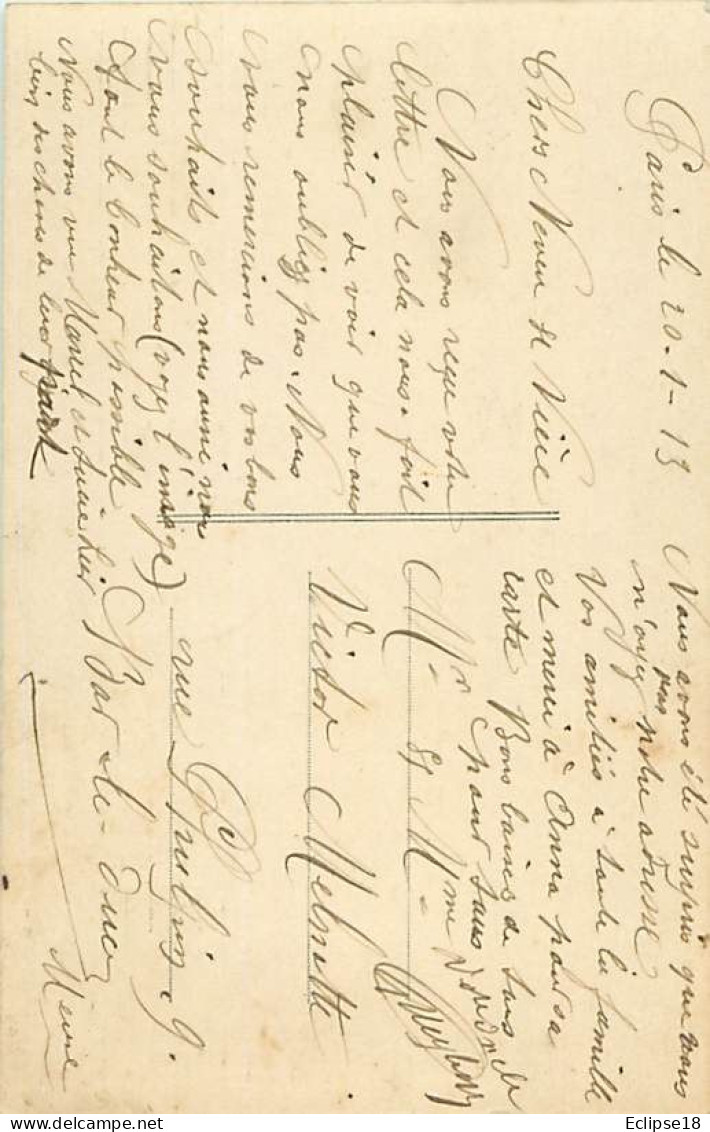 Paris le 20-1-13
Chers Neveu et Nièce
Nous avons reçu votre
lettre et cela nous fait
plaisir de voir que vous
nous oubliez pas. Nous
vous remercions de vos bons
souhaits et nous aussi nous
vous souhaitons (voyez l'image)
tout le bonheur possible
Nous avons vu Marcel et hier
bien des choses de leur part
Nous avons été surpris que vous
n'ayez pas notre adresse
Vos amitiés à toute la famille
et merci à Anna pour sa
carte Bons baisers de tous
pour tous
Mr & Mme
Victor
rue 9.
Bar-le-Duc
Meuse
Eclipse18